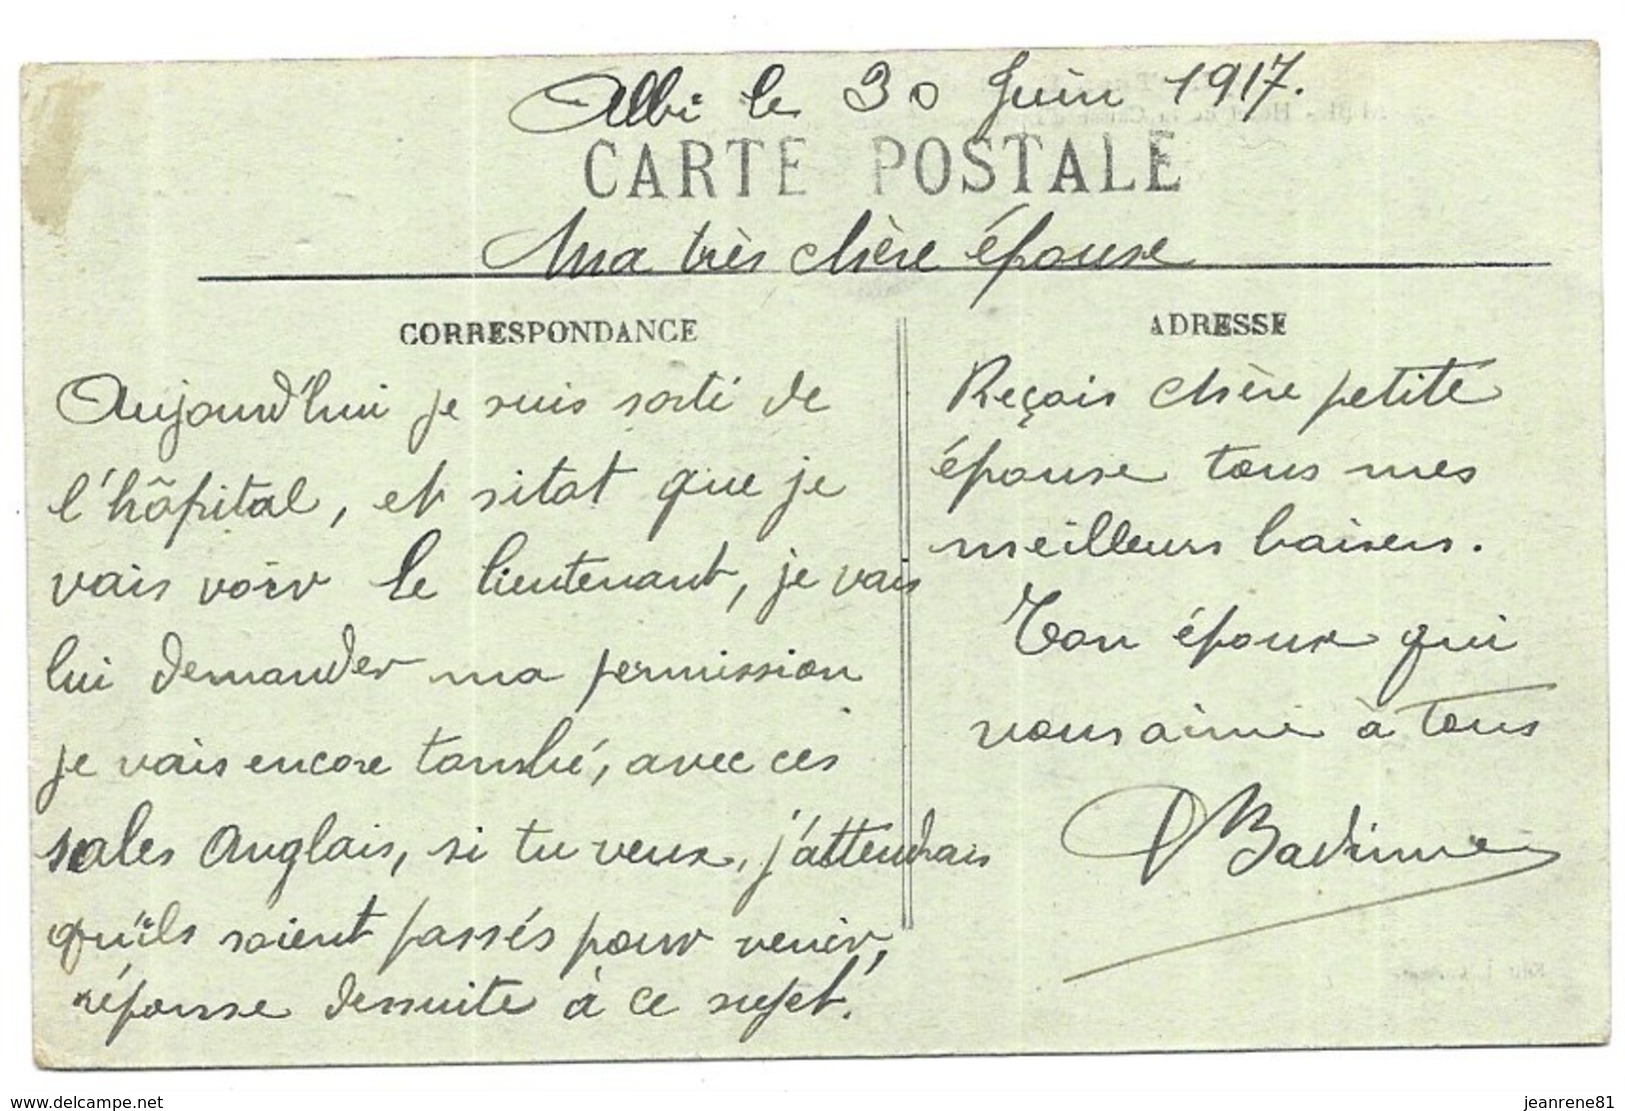 Albi le 30 Juin 1917.
CARTE POSTALE
Ma très chère épouse
CORRESPONDANCE
Aujourd'hui je suis sorti de
l'hôpital, et sitat que je
vais voir le lieutenant, je vais
lui demander ma permission
je vais encore tombé, avec ces
sales Anglais, si tu veux, j'attendrais
qu'ils soient passés pour venir,
réponse dessuite à ce sujet.
ADRESSE
Reçois chère petite
épouse tous mes
meilleurs baisers.
Ton époux qui
vous aime à tous
www.delcampe.net
jeanrene81